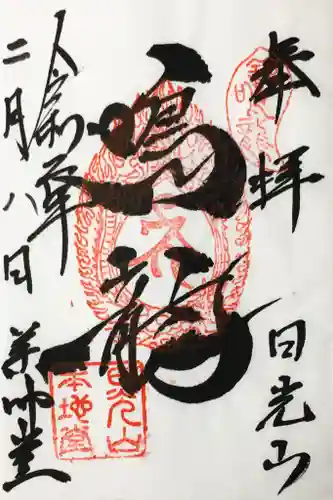 奉拝
日光山
鳴龍
令和六年
二月八日
薬師堂
日光山
本地堂